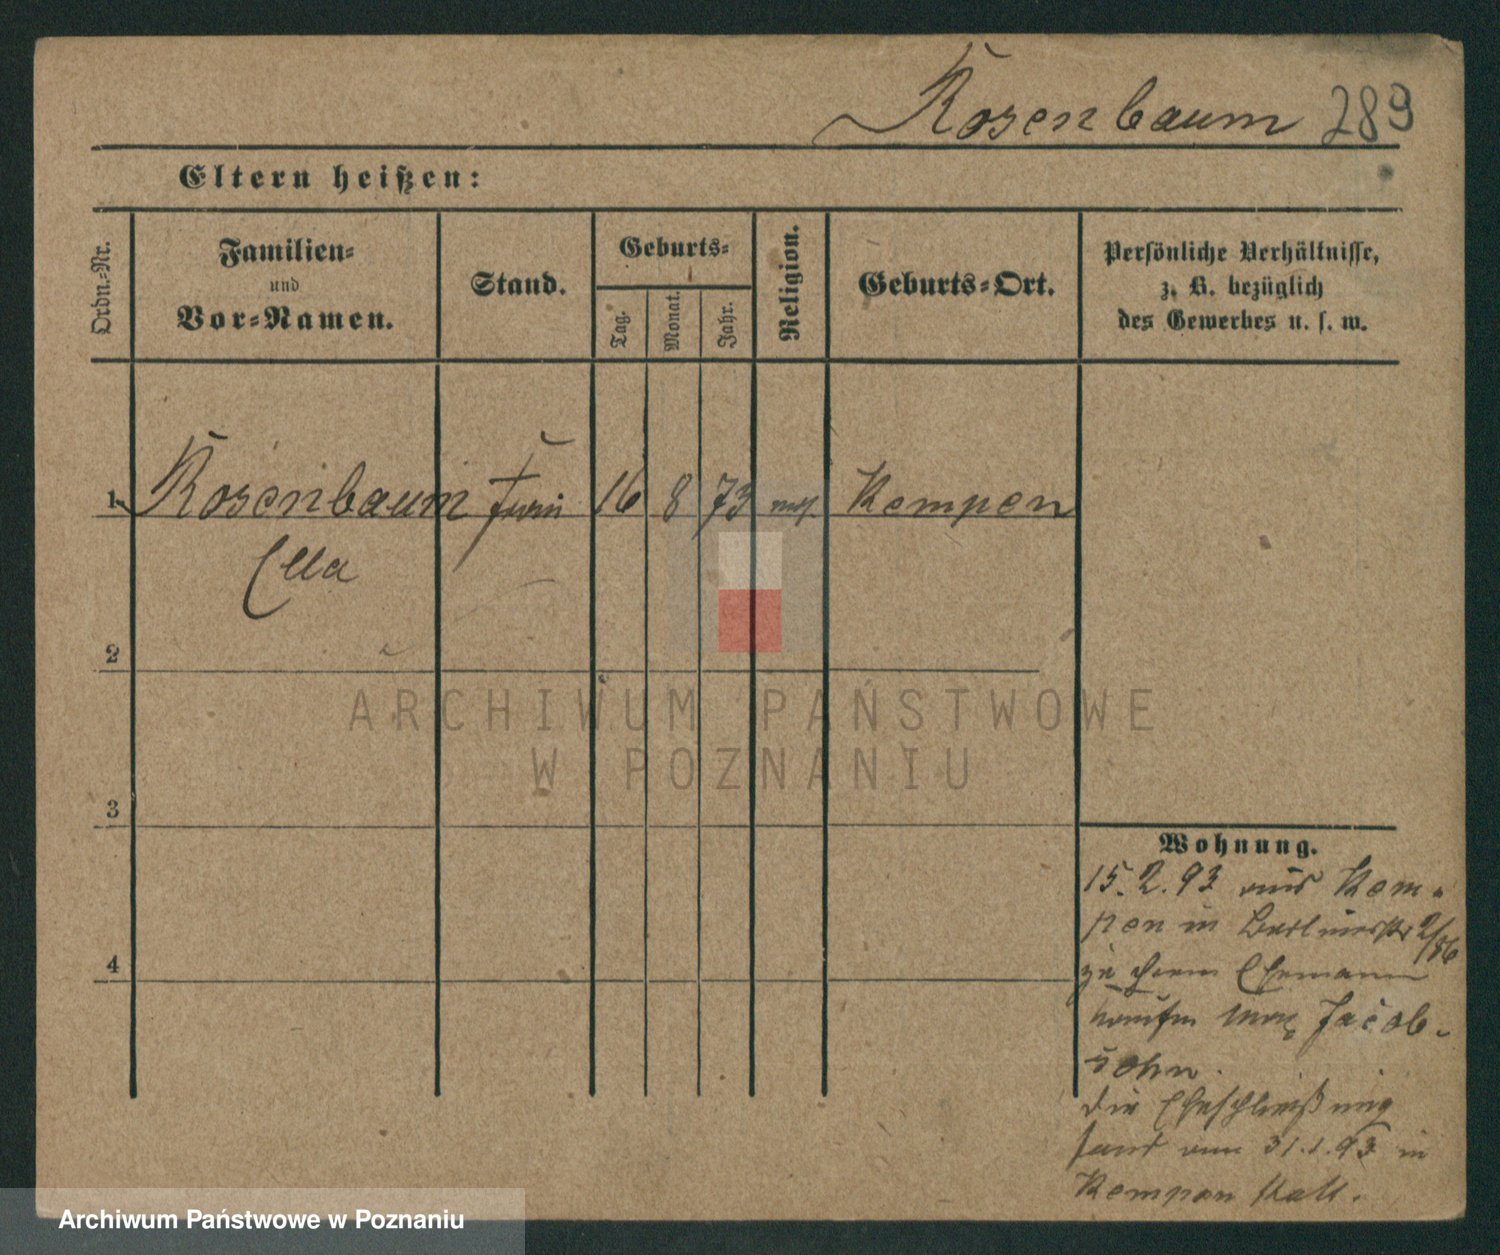 Rosenbaum 289
Eltern heißen:
Ordn.-Nr.
Familien-
und
Vor-Namen.
Stand.
Geburts-
Tag.
Monat.
Jahr.
Religion.
Geburts-Ort.
Persönliche Verhältnisse,
z. B. bezüglich
des Gewerbes u. s. w.
1 Rosenbaum 16 8 73 mos. Kempen
Ella
2
3
4
Wohnung.
15.2.93 aus Kem-
pen in Berlinerstr
zu ihrem Ehemann
Kaufm Max Jacob-
sohn.
die Eheschließung
fand am 31.1.93 in
Kempen statt.
ARCHIWUM PAŃSTWOWE
W POZNANIU
Archiwum Państwowe w Poznaniu